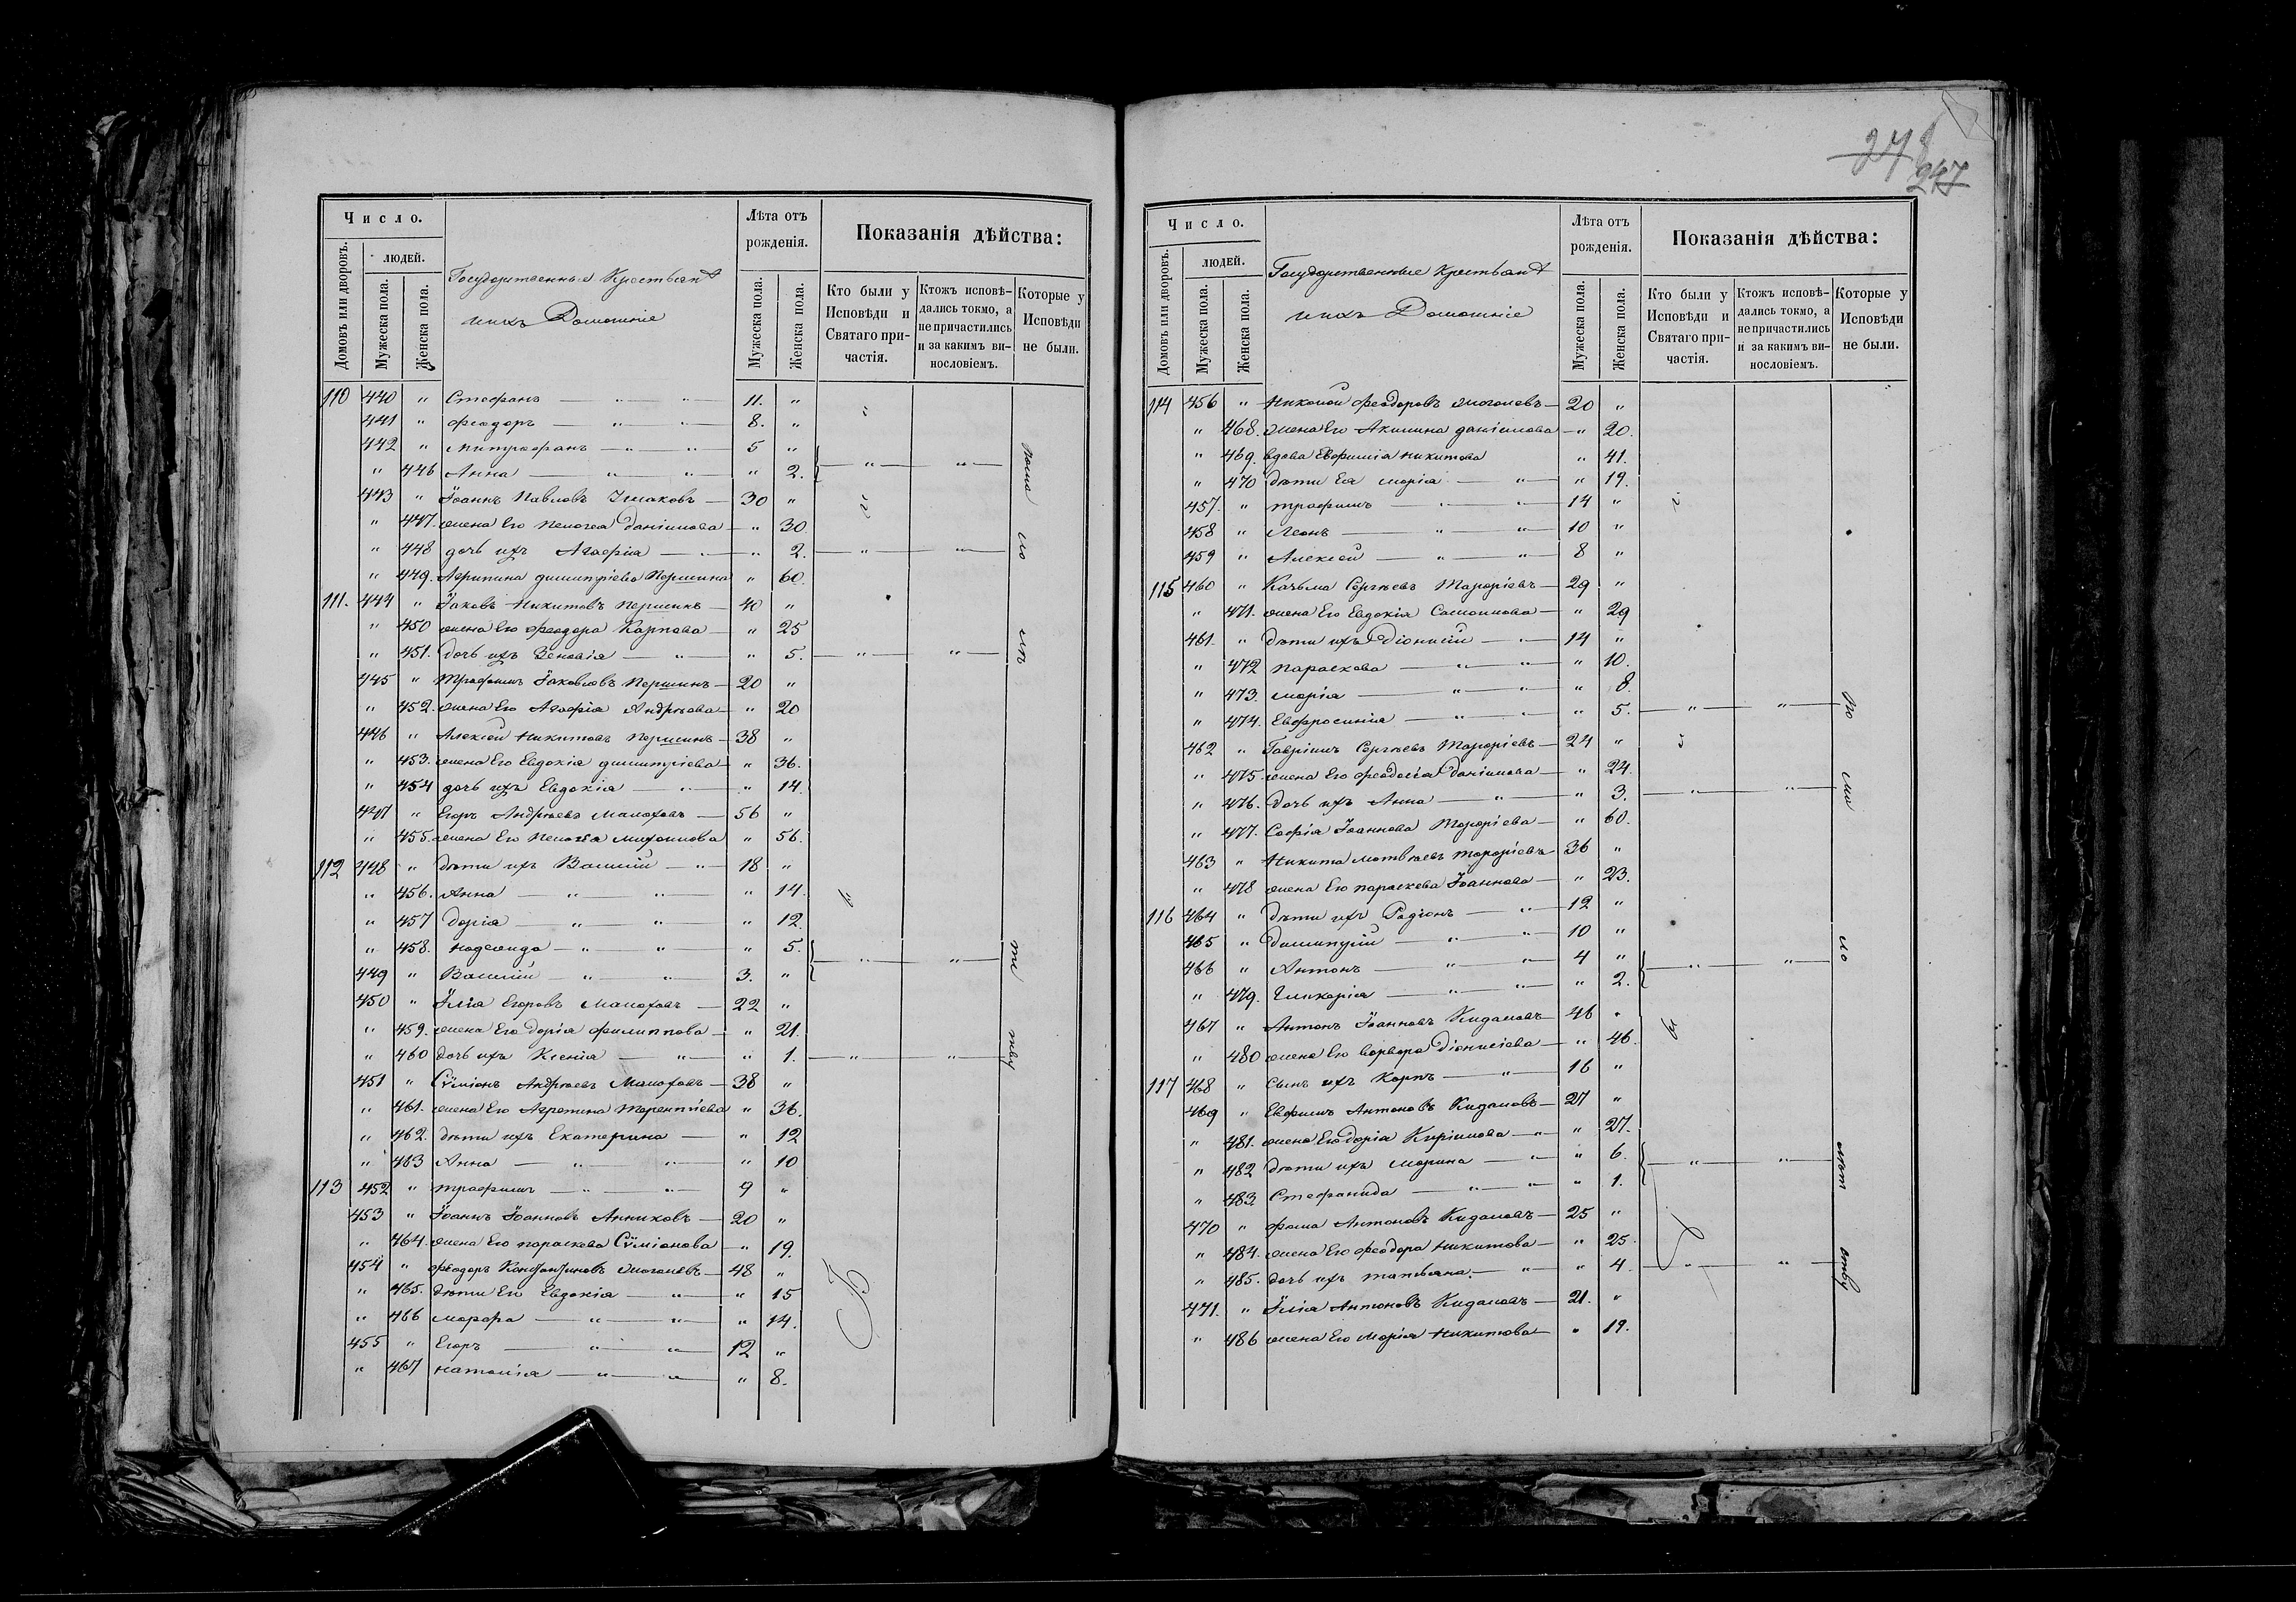 Число.
Домовъ или дворовъ.
людей.
Мужеска пола.
Женска пола.
Государственные Крестьяне
ихъ Домашніе
Лѣта отъ
рожденія.
Мужеска пола.
Женска пола.
Показанія дѣйства:
Кто были у Исповѣди и Святаго при-частія.
Ктожъ исповѣ-дались токмо, а не причастились и за какимъ ви-нословіемъ.
Которые у Исповѣди не были.
110 440 " Стефанъ — " — " — 11. "
441 " Феодоръ — " — " — 8. "
442 " Митрофанъ — " — " — 5 "
" 446 Анна — " — " — " 2. — " — " —
443 " Іоаннъ Павловъ — 30 "
" 447. жена Его Пелагея Даніилова — " 30
" 448 дочь ихъ Агафія — " — " 2. — " — " —
" 449. Агрипина Димитріева Першина " 60.
111. 444 " Іаковъ Никитовъ Першинъ — 40 "
" 450 жена Его Феодора Карпова — " 25
" 451. Дочь ихъ Зеновія — " — " 5. — " — " —
445 " Трофимъ Іаковлевъ Першинъ — 20 "
" 452. жена Его Агафія Андрѣева — " 20
446 " Алексѣй Никитовъ Першинъ — 38 "
" 453. жена Его Евдокія Димитріева — " 36.
" 454 дочь ихъ Евдокія — " — " 14.
447 " Егоръ Андрѣевъ Малаховъ — 56 "
" 455. жена Его Пелагея Михаилова " 56.
112 448 " дѣти ихъ Василій — " — 18 "
" 456. Анна — " — " — " 14.
" 457 Дарія — " — " — " 12.
" 458. Надежда — " — " — " 5.
449 " Василій — " — " — 3. " — " — " —
450 " Илія Егоровъ Малаховъ — 22 "
" 459. жена Его Дарія Филиппова — " 21.
" 460 дочь ихъ Ксенія — " — " 1. — " — " —
451 " Сѵміонъ Андрѣевъ Малаховъ — 38 "
" 461. жена Его Агрепина Терентіева " 36.
" 462. дѣти ихъ Екатерина — " 12
" 463 Анна — " — " — " 10
113 452 " Трофимъ — " — " — 9 "
453 " Іоаннъ Іоанновъ Анниковъ — 20 "
" 464. жена Его Параскева Сѵміонова — " 19.
454 " Феодоръ Константиновъ — 48 "
" 465. дѣти Его Евдокія — " — " 15
" 466 Марфа — " — " — " 14.
455 " Егоръ — " — " — 12 "
" 467 Наталія — " — " — " 8.
247
Число.
Домовъ или дворовъ.
людей.
Мужеска пола.
Женска пола.
Государственные Крестьяне
ихъ Домашніе
Лѣта отъ
рожденія.
Мужеска пола.
Женска пола.
Показанія дѣйства:
Кто были у Исповѣди и Святаго при-частія.
Ктожъ исповѣ-дались токмо, а не причастились и за какимъ ви-нословіемъ.
Которые у Исповѣди не были.
114 456 " Николай Феодоровъ — 20 "
" 468. жена Его Акилина Даніилова — " 20.
" 469. вдова Евфимія Никитова " 41.
" 470 дѣти Ея Марія — " — " 19.
457. " Трофимъ — " — " — 14 "
458 " Леонъ — " — " — 10 "
459 " Алексѣй — " — " — 8 "
115 460 " Козьма Сергѣевъ — 29 "
" 471. жена Его Евдокія Самоилова — " 29
461. " дѣти ихъ Діонисій — " — 14 "
" 472 Параскева — " — " — " 10.
" 473. Марія — " — " — " 8.
" 474. Евфросинія — " — " — " 5. — " — " —
462 " Гавріилъ Сергѣевъ — 24 "
" 475. жена Его Феодосія Даніилова — " 24.
" 476. дочь ихъ Анна — " — " 3. — " — " —
" 477. Софія Іоаннова — " 60.
463 " Никита Матвѣевъ — 36 "
" 478 жена Его Параскева Іоаннова — " 23.
116 464 " дѣти ихъ Радіонъ — " — 12 "
465 " Димитрій — " — " — 10 "
466 " Антонъ — " — " — 4 "
" 479. Гликерія — " — " — " 2. — " — " —
467 " Антонъ Іоанновъ Кидаловъ — 46 "
" 480 жена Его Варвара Діонисіева — " 46.
117 468 " Сынъ ихъ Карпъ — " — 16 "
469 " Евфимъ Антоновъ Кидаловъ — 27 "
" 481. жена Его Дарія Кирилова — " 27.
" 482 дѣти ихъ Марина — " — " 6.
" 483 Стефанида — " — " — " 1. — " — " —
470 " Фома Антоновъ Кидаловъ — 25 "
" 484. жена Его Феодора Никитова — " 25.
" 485. дочь ихъ Татьяна — " — " 4. — " — " —
471. " Илія Антоновъ Кидаловъ — 21. "
" 486 жена Его Марія Никитова — " 19.